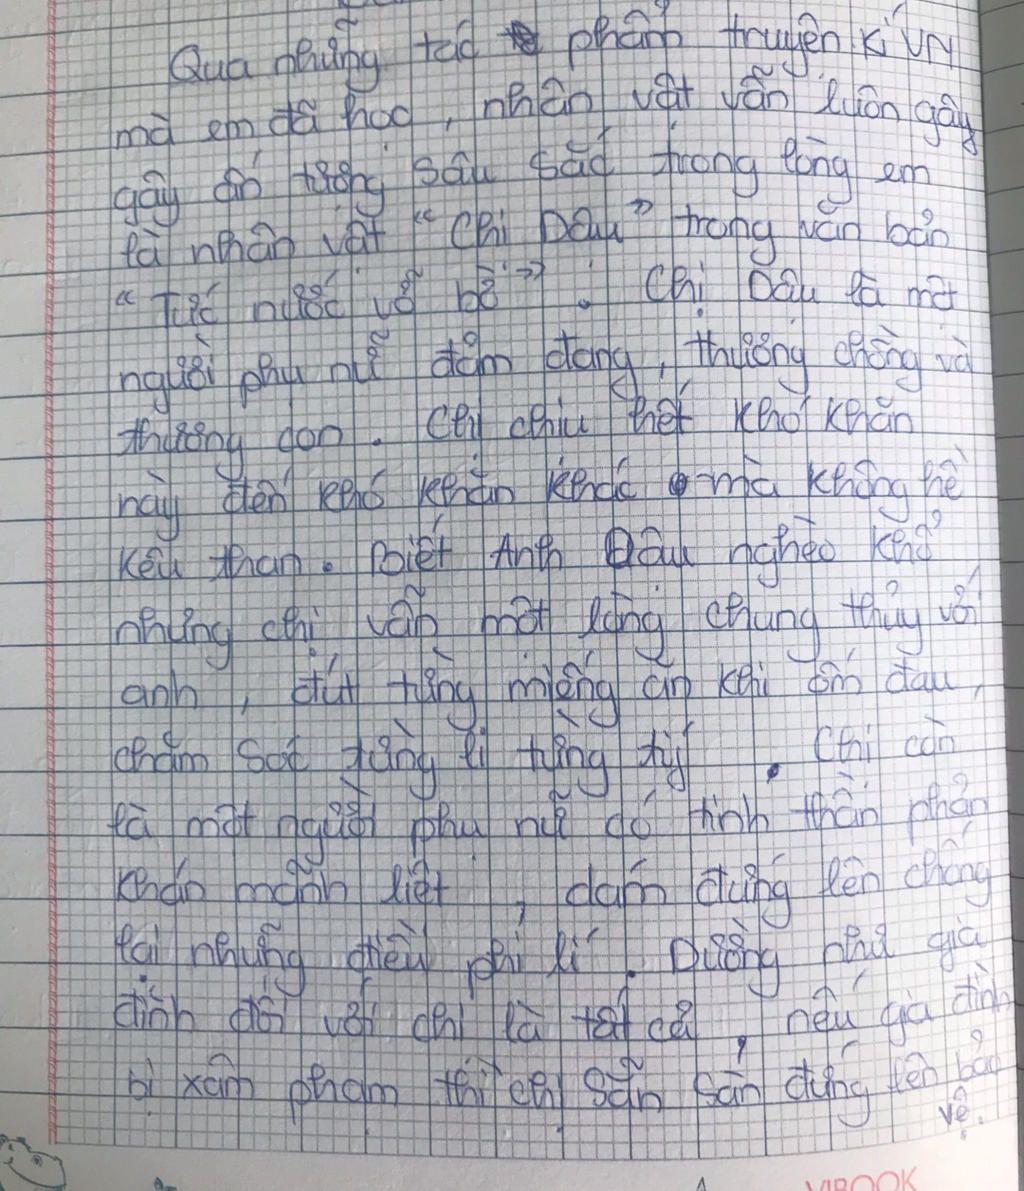 Qua những tác phẩm truyện kí VN
mà em đã học, nhân vật vẫn luôn gây
gây ấn tượng sâu sắc trong lòng em
là nhân vật "Chị Dậu" trong văn bản
"Tức nước vỡ bờ". Chị Dậu là một
người phụ nữ đảm đang, thương chồng và
thương con. Chị chịu hết khó khăn
này đến khó khăn khác mà không hề
kêu than. Biết Anh Dậu nghèo khổ
nhưng chị vẫn một lòng chung thủy với
anh, đút từng miếng ăn khi ốm đau,
chăm sóc từng li từng tý. Chị còn
là một người phụ nữ có tinh thần phản
kháng mãnh liệt, dám đứng lên chống
lại những điều phi lí. Dường như gia
đình đối với chị là tất cả, nếu gia đình
bị xâm phạm thì chị sẵn sàn đứng lên bảo
vệ.
VIBOOK